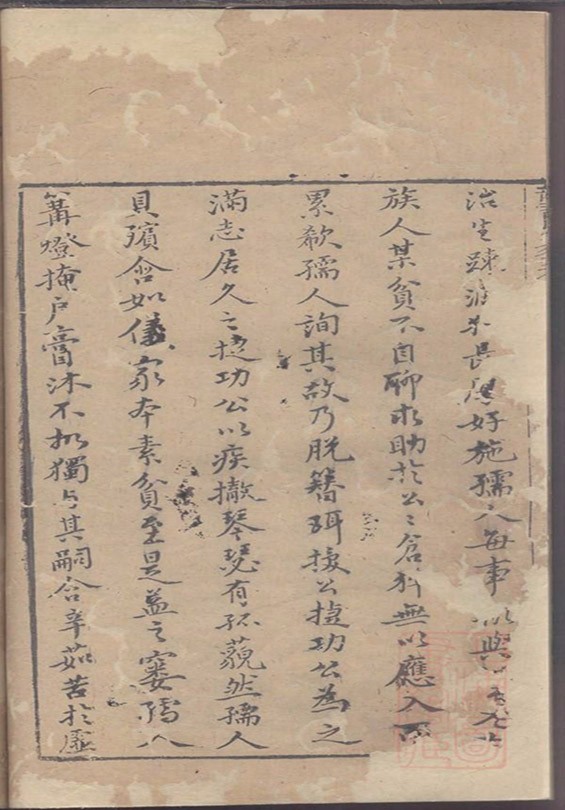 治生踈濶不長愚好施孺人每事以與
族人某貧不自聊求助於公〻倉猝無以應入而
累欷孺人詢其故乃脫簪珥授公捷功公為之
滿志居久之捷功公以疾撤琴瑟有孤藐然孺人
具殯含如儀家本素貧至是益之窶孺人
篝燈掩戶膏沐不抓獨与其嗣含辛茹苦於虛